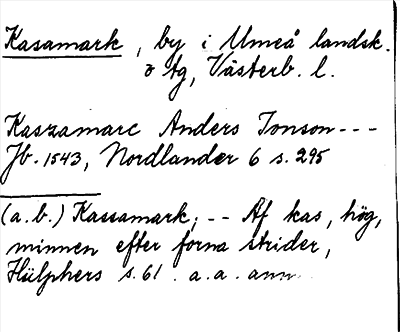 Kasamark, by i Umeå landsk.
o tg, Västerb. l.
Kaszamarc Anders Jonson---
Jb. 1543, Nordlander 6 s. 295
(a.b.) Kassamark; -- Af kas, hög,
minnen efter forna strider,
Hülphers s. 61. a. a. anm